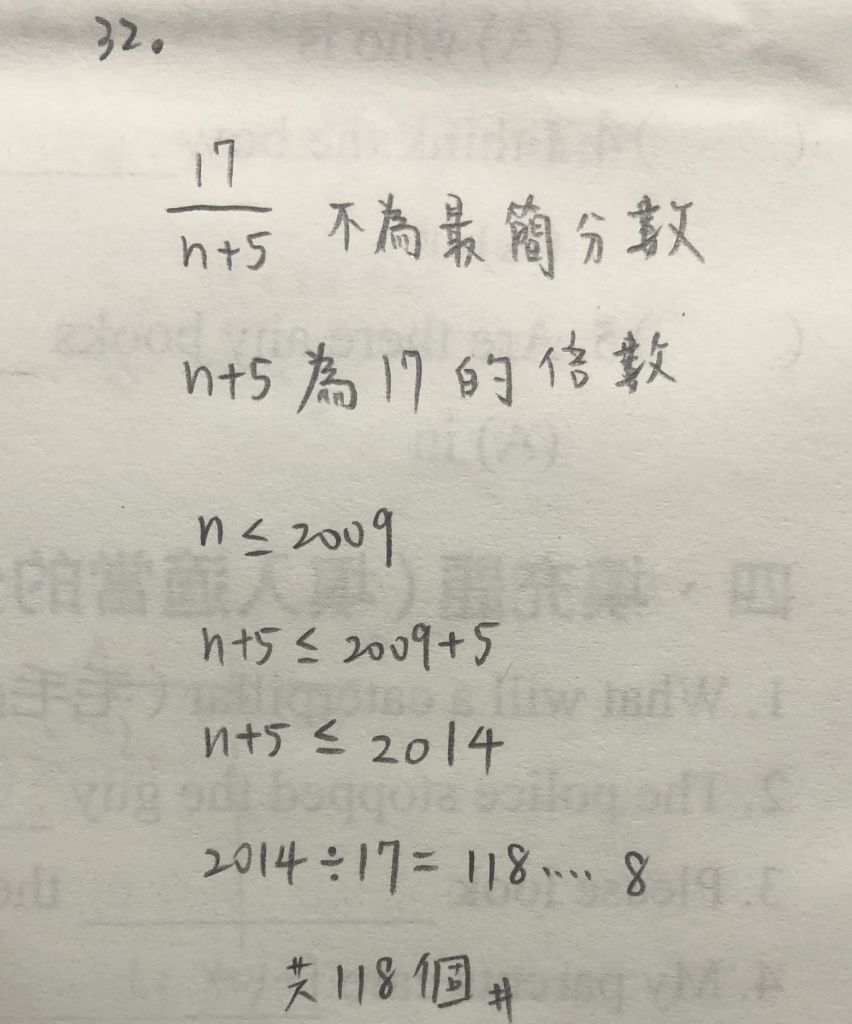 32.
17
n+5 不為最簡分數
n+5 為 17 的倍數
n ≤ 2009
n+5 ≤ 2009+5
n+5 ≤ 2014
2014÷17= 118.... 8
共118個 #